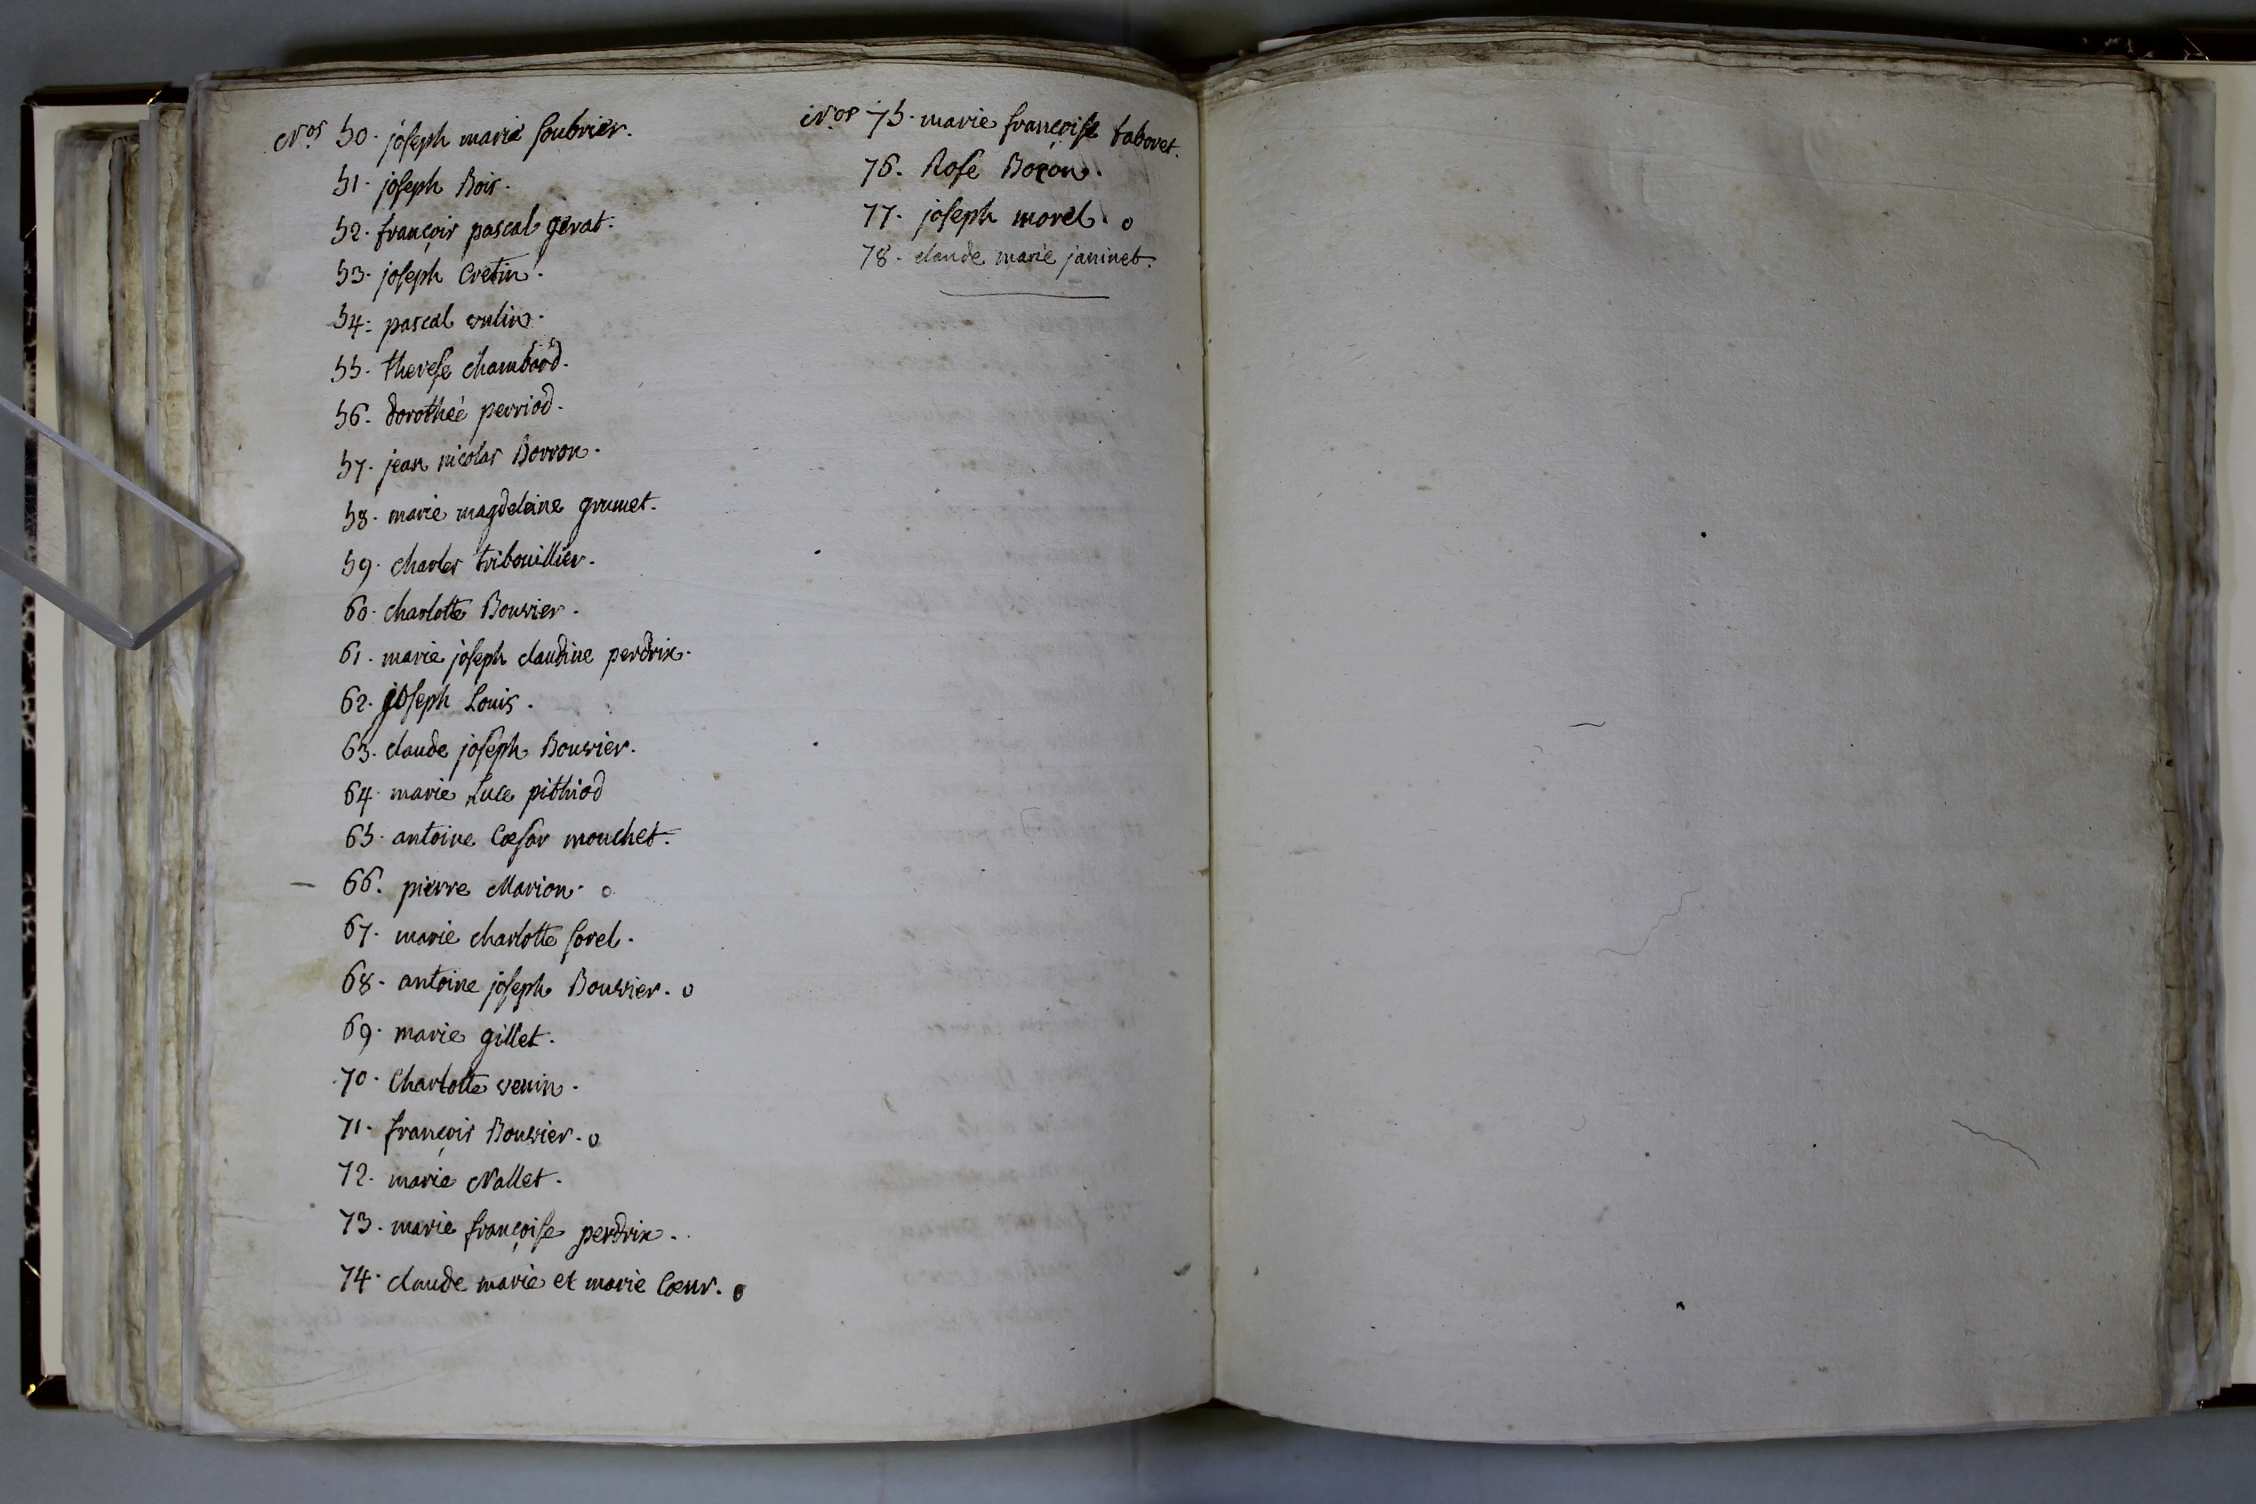 Nos 50. joseph marie soubrier.
51. joseph Bois.
52. françois pascal gerat.
53. joseph Cretin.
54. pascal vulin.
55. therese chambard.
56. dorotheé perriod.
57. jean nicolas Borron.
58. marie magdeleine grumet.
59. charles tribouillier.
60. charlotte Bouvier.
61. marie joseph claudine perdrix.
62. joseph Louis.
63. claude joseph Bouvier.
64. marie Luce pithiod
65. antoine Cæsar mouchet.
66. pierre Marion. o
67. marie charlotte sorel.
68. antoine joseph Bouvier. o
69. marie gillet.
70. Charlotte venin.
71. françois Bouvier. o
72. marie Nallet.
73. marie françoise perdrix.
74. claude marie et marie Cœur. o
Nos 75. marie françoise taboret.
76. Rose Boçon.
77. joseph morel. o
78. claude marie janinet.